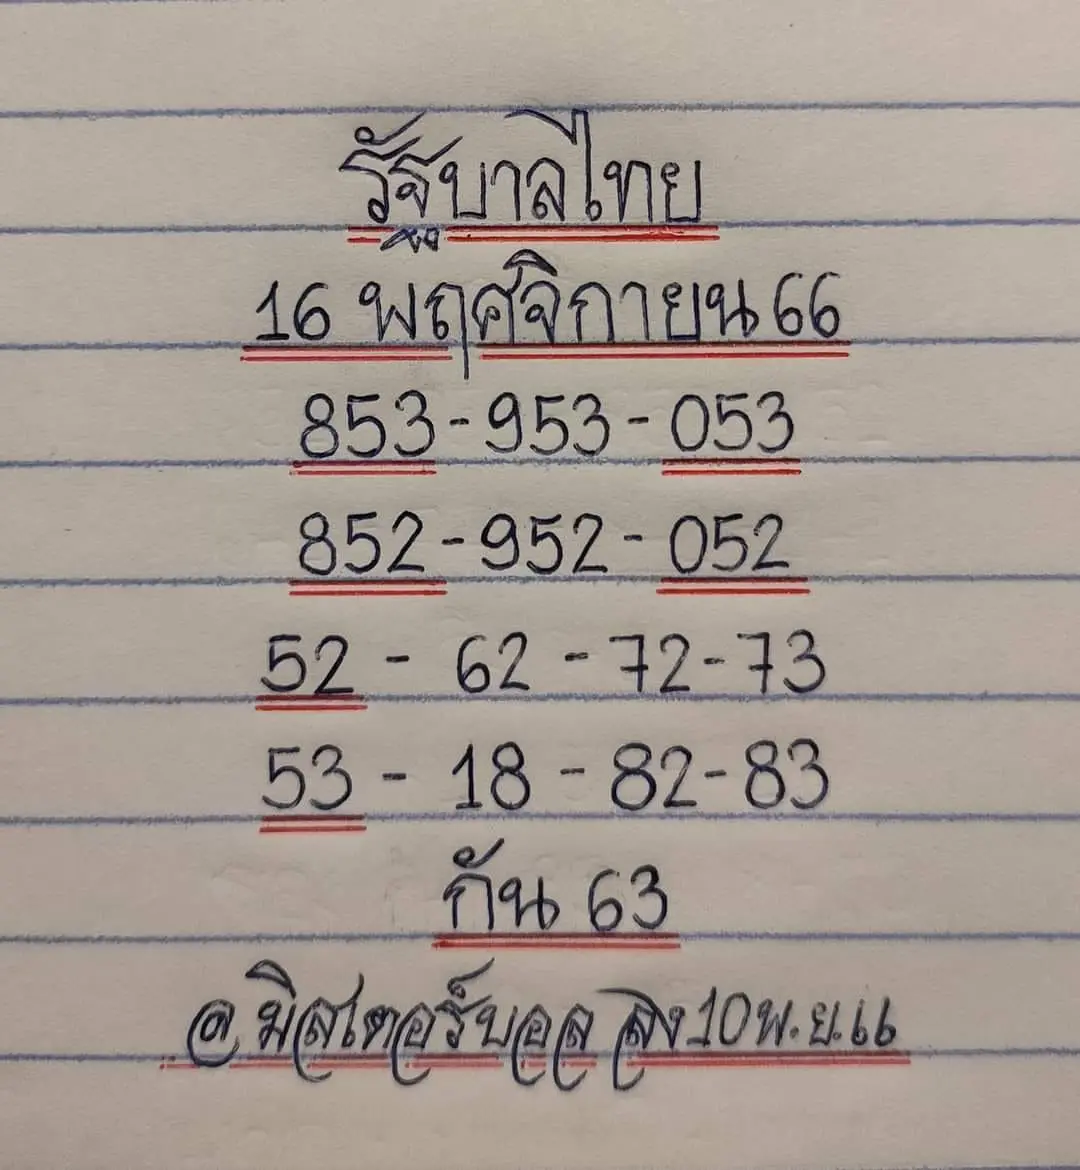 รัฐบาลไทย
16 พฤศจิกายน 66
853-953-053
852-952-052
52 - 62 - 72-73
53 - 18 - 82-83
กัน 63
@มิสเตอร์บอล ลง 10 พ.ย.66